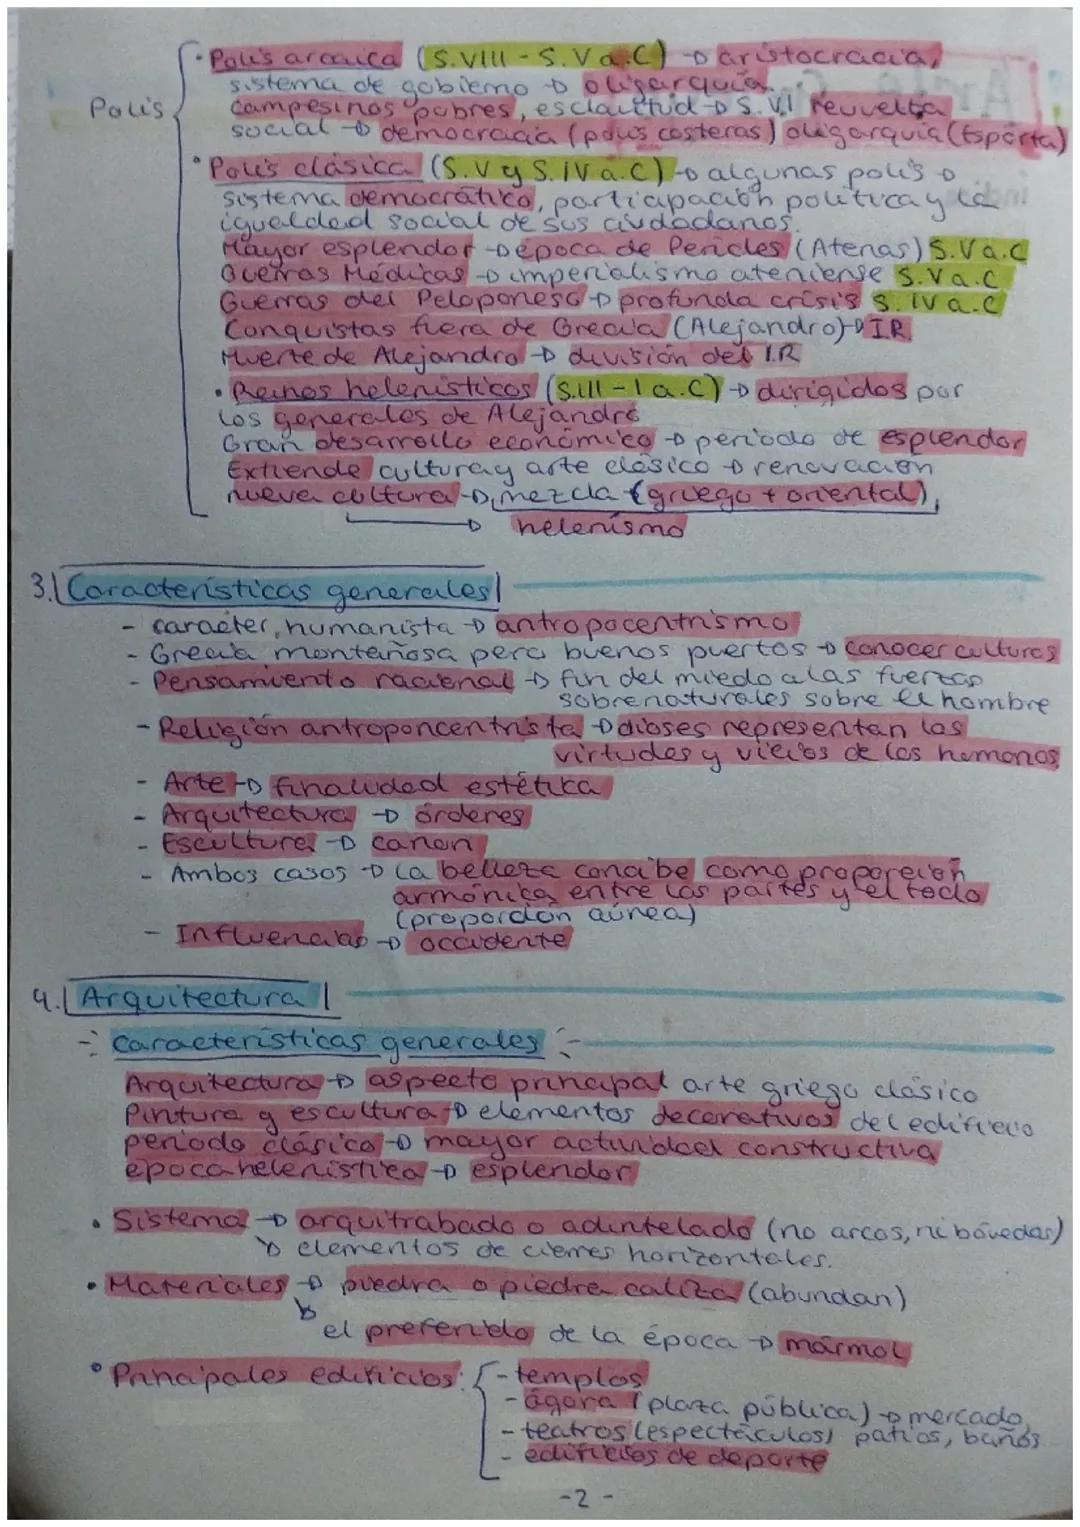 Polis
• Polis arcaica (S.VIII - S.V a.C) → aristocracia,
sistema de gobierno → oligarquía.
campesinos pobres, esclavitud → S.VI revuelta
social → democracia (polis costeras) oligarquía (Esparta)
• Polis clásica (S.V y S.IV a.C) → algunas polis →
sistema democrático, participación política y la
igualdad social de sus ciudadanos.
Mayor esplendor → época de Pericles (Atenas) S.V a.C
Guerras Médicas → imperialismo ateniense S.V a.C
Guerras del Peloponeso → profunda crisis S.IV a.C
Conquistas fuera de Grecia (Alejandro) → I.R
Muerte de Alejandro → división del I.R
• Reinos helenísticos (S.III - I a.C) → dirigidos por
los generales de Alejandro
Gran desarrollo económico → periodo de esplendor
Extiende cultura y arte clásico → renovación
nueva cultura → mezcla (griego + oriental)
→ helenismo
3. Características generales
- carácter humanista → antropocentrismo
- Grecia montañosa pero buenos puertos → conocer culturas
- Pensamiento racional → fin del miedo a las fuerzas
sobrenaturales sobre el hombre
- Religión antroponcentrista → dioses representan las
virtudes y vicios de los humanos
- Arte → finalidad estética
- Arquitectura → órdenes
- Escultura → canon
- Ambos casos → la belleza concibe como proporción
armónica entre las partes y el todo
(proporción aúrea)
- Influencias → occidente
4. Arquitectura
características generales
Arquitectura → aspecto principal arte griego clásico
Pintura y escultura → elementos decorativos del edificio
periodo clásico → mayor actividad constructiva
época helenística → esplendor
• Sistema → arquitrabado o adintelado (no arcos, ni bóvedas)
↳ elementos de cierres horizontales.
• Materiales → piedra o piedra caliza (abundan)
↳ el preferido de la época → mármol
• Principales edificios: - templos
- ágora (plaza pública) → mercado,
- teatros (espectáculos) patios, baños
- edificios de deporte
- 2 -